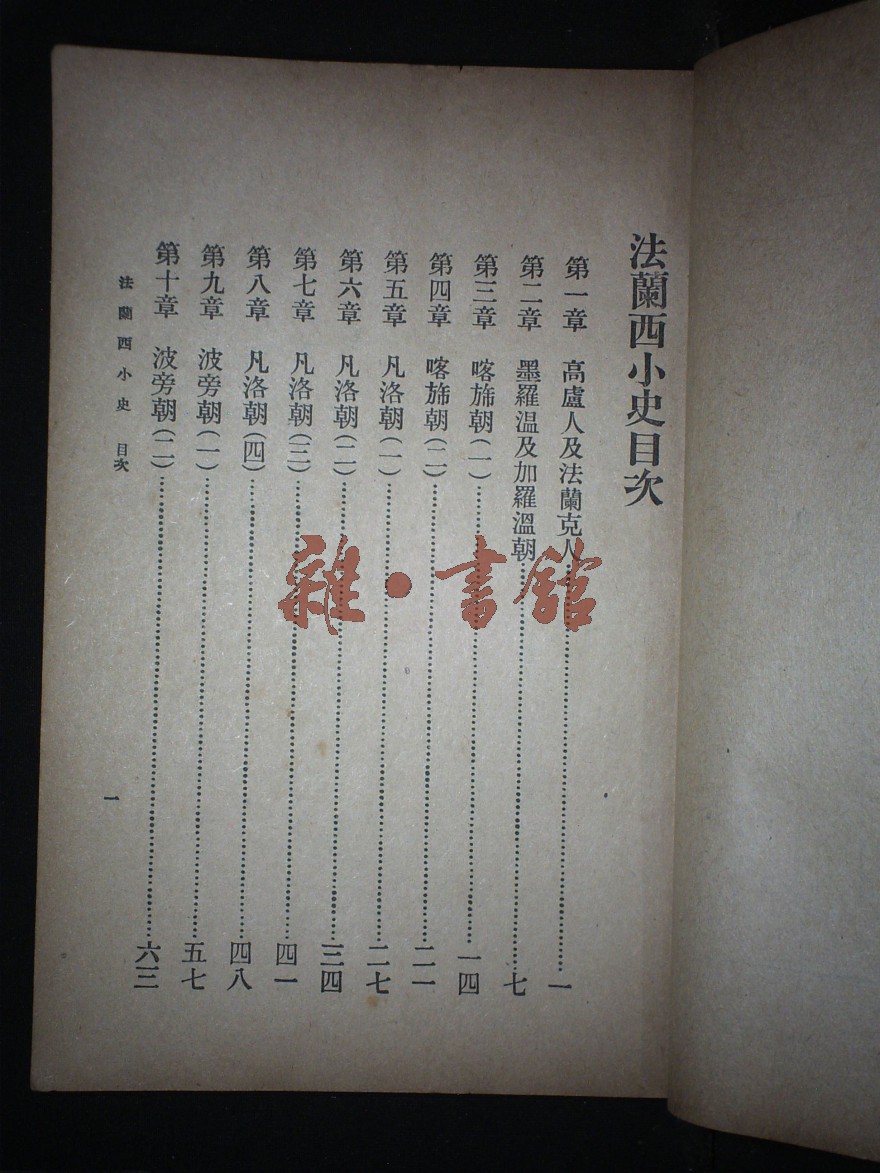 法蘭西小史目次
第一章　高盧人及法蘭克人……一
第二章　墨羅温及加羅溫朝……七
第三章　喀斾朝(一)……一四
第四章　喀斾朝(二)……二一
第五章　凡洛朝(一)……二七
第六章　凡洛朝(二)……三四
第七章　凡洛朝(三)……四一
第八章　凡洛朝(四)……四八
第九章　波旁朝(一)……五七
第十章　波旁朝(二)……六三
法蘭西小史　目次
一
雜·書館